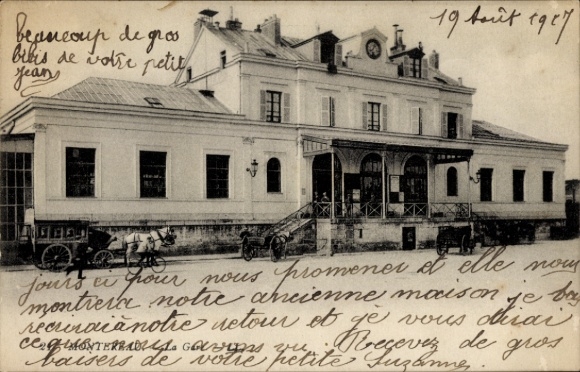 beaucoup de gros
19 Août 1917
bises de votre petit
jean
jours ici pour nous promener et elle nous
montrera notre ancienne maison je
à notre retour et je vous dirai
ce que nous avons vu. Recevez de gros
MONTEREAU. — La Gare
baisers de votre petite Suzanne.